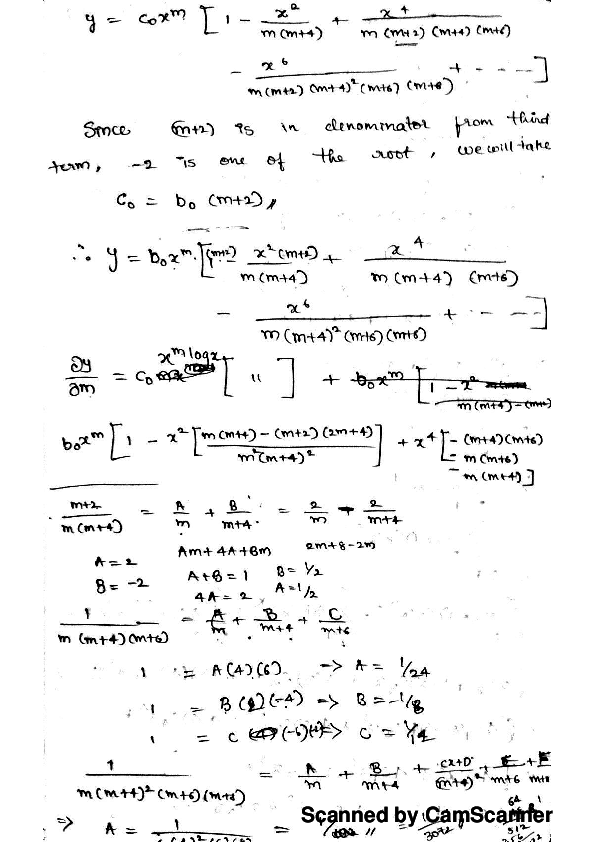 y = c₀x^m [ 1 - x²/m(m+4) + x⁴/m(m+2)(m+4)(m+6)
- x⁶/m(m+2)(m+4)²(m+6)(m+8) + - - - - ]
Since (m+2) is in denominator from third
term, -2 is one of the root, we will take
C₀ = b₀ (m+2),,
∴ y = b₀x^m [ (m+2) - x²(m+2)/m(m+4) + x⁴/m(m+4)(m+6)
- x⁶/m(m+4)²(m+6)(m+8) + - - - ]
∂y/∂m = C₀ x^m log x [ " ] + b₀x^m [ 1 - x²
m(m+4) - (m+2)
b₀x^m [ 1 - x² [ m(m+4) - (m+2)(2m+4) / m²(m+4)² ] + x⁴ [ - (m+4)(m+6)
- m(m+6)
- m(m+4) ]
m+2/m(m+4) = A/m + B/m+4 = 2/m - 2/m+4
A = 2 Am + 4A + Bm 2m+8-2m
B = -2 A+B = 1 B = 1/2
4A = 2 A = 1/2
1/m(m+4)(m+6) = A/m + B/m+4 + C/m+6
1 = A(4)(6) -> A = 1/24
1 = B(2)(-4) -> B = -1/8
1 = C (-6)(-2) => C = 1/12
1/m(m+4)²(m+6)(m+8) = A/m + B/m+4 + Cx+D/(m+4)² + E/m+6 + F/m+8
=> A = 1/ = 1/ " = /3072
Scanned by CamScanner